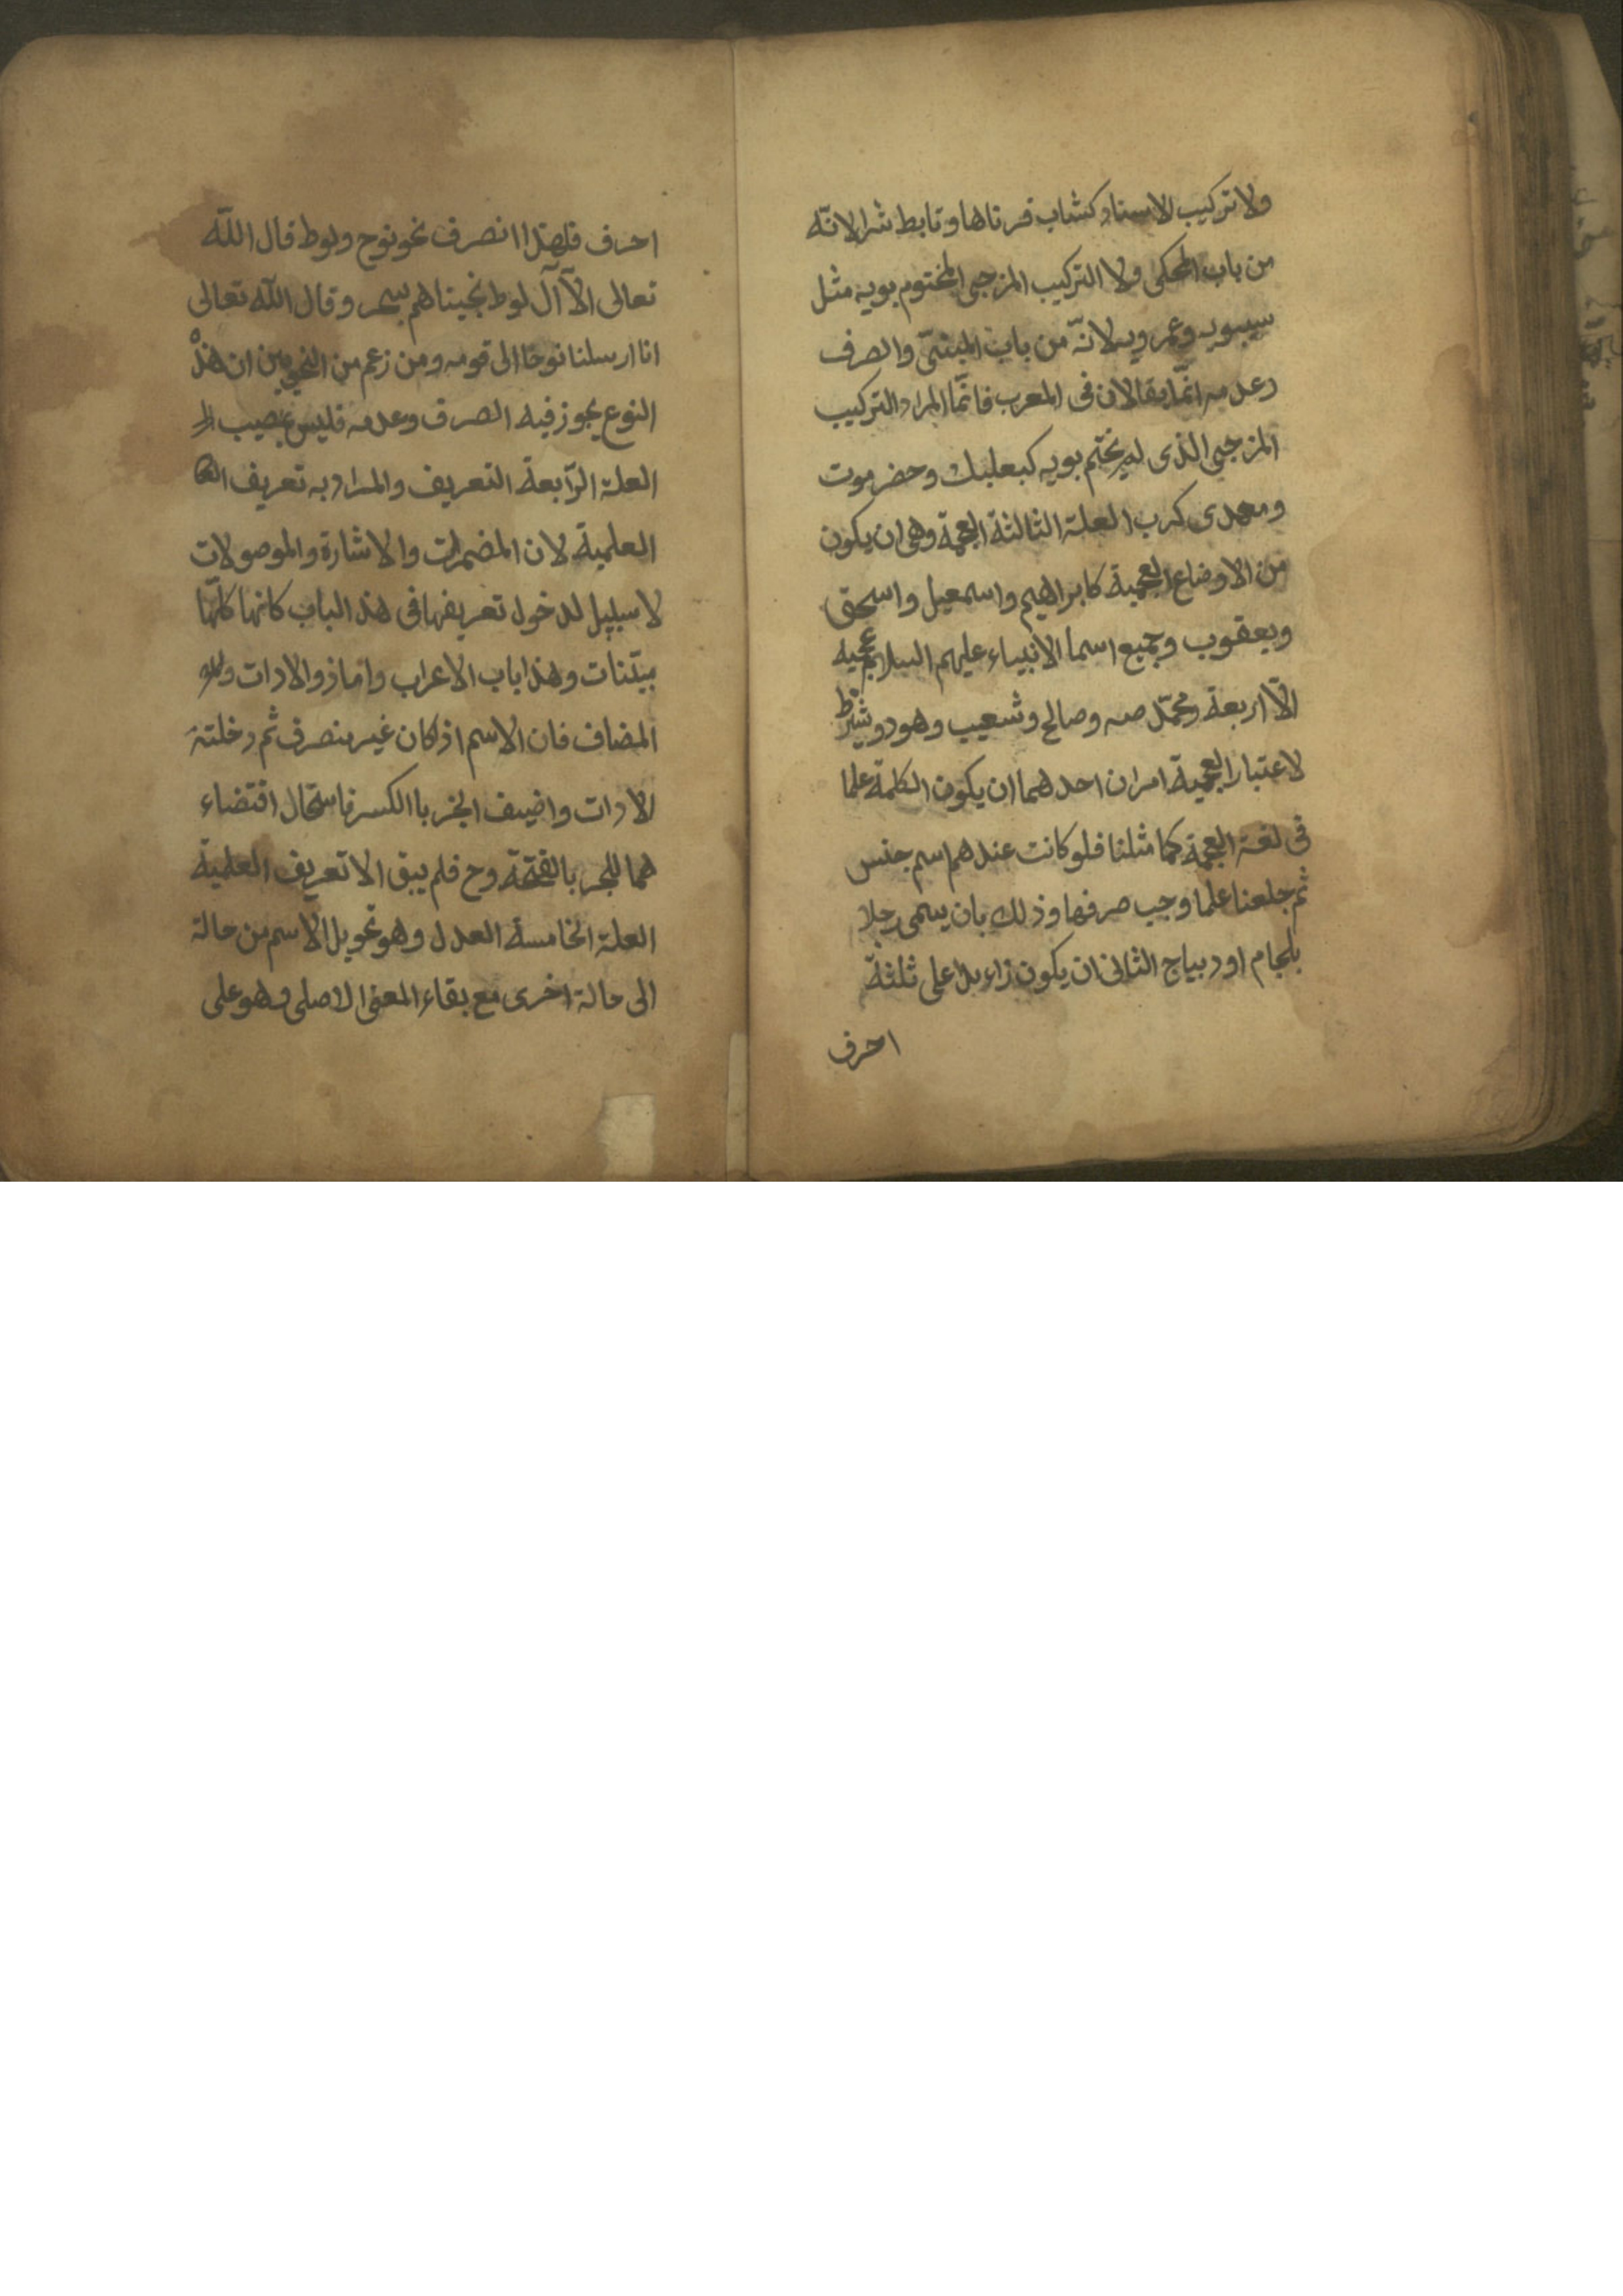 ولا تركيب الاسناد كشاب قرناها وتابط شرا لانّه
من باب المحكى ولا التركيب المزجى المختوم بويه مثل
سيبويه وعمرويه لانّه من باب المبنىّ والصرف
وعدمه انّما يقالان فى المعرب فانّما المراد التركيب
المزجى الذى لم يختم بويه كبعلبك وحضرموت
ومعدى كرب العلة الثالثة العجمة وهى ان يكون
من الاوضاع العجمية كابراهيم واسمعيل واسحق
ويعقوب وجميع اسما الانبياء عليهم السلام عجميه
الاّ اربعة ومحمّد صه وصالح وشعيب وهود ويشترط
لاعتبار العجمية امران احدهما ان يكون الكلمة علما
فى لغة العجمة كما مثلنا فلو كانت عندهم اسم جنس
ثم جلعنا علما وجب صرفها وذلك بان يسمى رجلا
بلجام او ديباج الثانى ان يكون زاءدا على ثلثة
احرف
احرف فلهذا انصرف نحو نوح ولوط قال اللّه
تعالى الاّ آل لوط نجيناهم بسحر وقال اللّه تعالى
انا ارسلنا نوحا الى قومه ومن زعم من النحويين ان هذا
النوع يجوز فيه الصرف وعدمه فليس بمصيب
العلة الرّابعة التعريف والمراد به تعريف
العلمية لان المضمرات والاشارة والموصولات
لا سبيل لدخول تعريفها فى هذ الباب كانها كلّها
مبيّنات وهذا باب الاعراب واما ذو الادات و
المضاف فان الاسم اذا كان غير منصرف ثم دخلته
الادات واضيف انجر باالكسر فاستحال اقتضاء
هما للجر بالفتحة وح فلم يبق الا تعريف العلمية
العلة الخامسة العدل وهو تحويل الاسم من حالة
الى حالة اخرى مع بقاء المعنى الاصلى وهو على